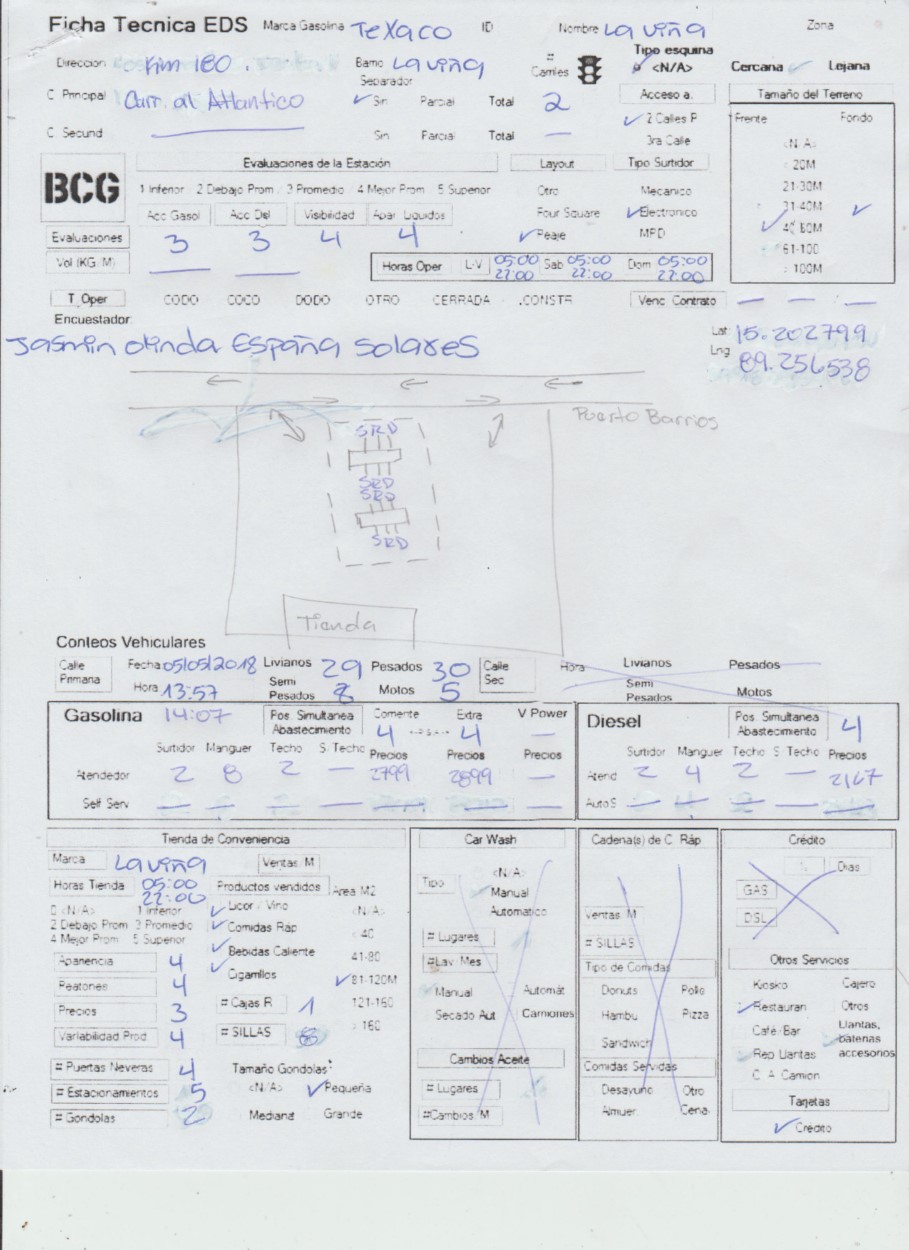 Ficha Tecnica EDS Marca Gasolina Texaco ID Nombre La viña Zona
Direccion Km 180. Barrio La viña # Carriles Tipo esquina <N/A> Cercana Lejana
Separador
C Principal Carr. al Atlantico Sin Parcial Total 2 Acceso a. Tamaño del Terreno
2 Calles P Frente Fondo
C Secund Sin Parcial Total — 3ra Calle <N/A>
BCG Evaluaciones de la Estación Layout Tipo Surtidor < 20M
1 Inferior 2 Debajo Prom 3 Promedio 4 Mejor Prom 5 Superior Otro Mecanico 21-30M
Acc Gasol Acc Dsl Visibilidad Apar Liquidos Four Square Electronico 31-40M
Evaluaciones 3 3 4 4 Peaje MPD 41-60M
61-100
Vol (KG/M) Horas Oper L-V 05:00 22:00 Sab 05:00 22:00 Dom 05:00 22:00 > 100M
T_Oper CODO COCO DODO OTRO CERRADA .CONSTR Venc Contrato — — —
Encuestador
Jasmin olinda España Solares
Lat 15.202799
Lng 89.256538
Puerto Barrios
SRD
SRD
SRD
SRD
Tienda
Conteos Vehiculares
Calle Primaria Fecha 05/05/2018 Livianos 29 Pesados 30 Calle Sec Hora Livianos Pesados
Hora 13:57 Semi Pesados 8 Motos 5 Semi Pesados Motos
Gasolina 14:07 Pos. Simultanea Abastecimiento Corriente 4 Extra 4 V Power — Diesel Pos. Simultanea Abastecimiento 4
Surtidor Manguer Techo S. Techo Precios Precios Precios Surtidor Manguer Techo S. Techo Precios
Atendedor 2 8 2 — 2799 2899 — Atend 2 4 2 — 2167
Self Serv Auto S
Tienda de Conveniencia Car Wash Cadena(s) de C Ráp Crédito
Marca La viña Ventas M <N/A> Dias
Horas Tienda 05:00 22:00 Productos vendidos Area M2 Tipo Manual GAS
0 <N/A> 1 Inferior Licor / Vino <N/A> Automatico Ventas M DSL
2 Debajo Prom 3 Promedio Comidas Ráp < 40 # Lugares # SILLAS
4 Mejor Prom 5 Superior Bebidas Caliente 41-80 #Lav Mes Tipo de Comidas Otros Servicios
Apariencia 4 Cigarrillos 81-120M Manual Automát Donuts Pollo Kiosko Cajero
Peatones 4 # Cajas R 1 121-160 Secado Aut Camiones Hambu Pizza Restauran Otros
Precios 3 # SILLAS 8 > 160 Sandwich Café/Bar Llantas, baterias accesorios
Variabilidad Prod 4 Cambios Aceite Comidas Servidas Rep Llantas
# Puertas Neveras 4 Tamaño Gondolas C A Camion
# Estacionamientos 5 <N/A> Pequeña # Lugares Desayuno Otro Tarjetas
# Gondolas 2 Mediana Grande #Cambios M Almuer Cena Credito